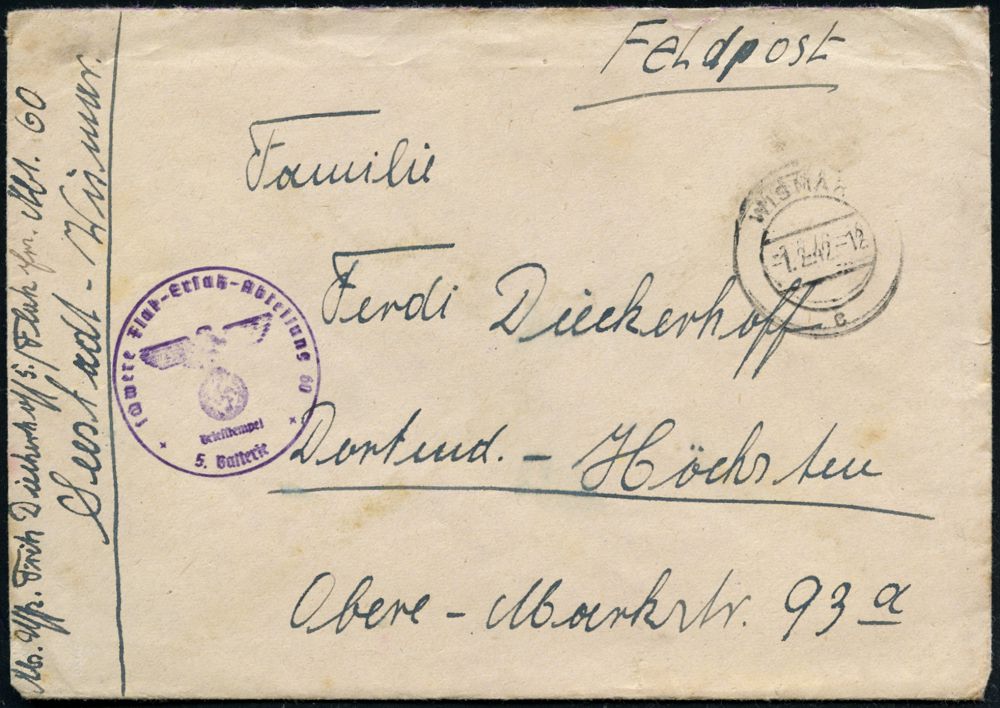 Feldpost
Familie
Ferdi Dieckerhoff
Dortmd. - Höchsten
Obere - Markstr. 93 a
WISMAR
-1.2.42.-12
c
schwere Flak-Ersatz-Abteilung 60
Briefstempel
5. Batterie
Fritz Dieckerhoff 5./Flak Abt. 60
Seestadt - Wismar.